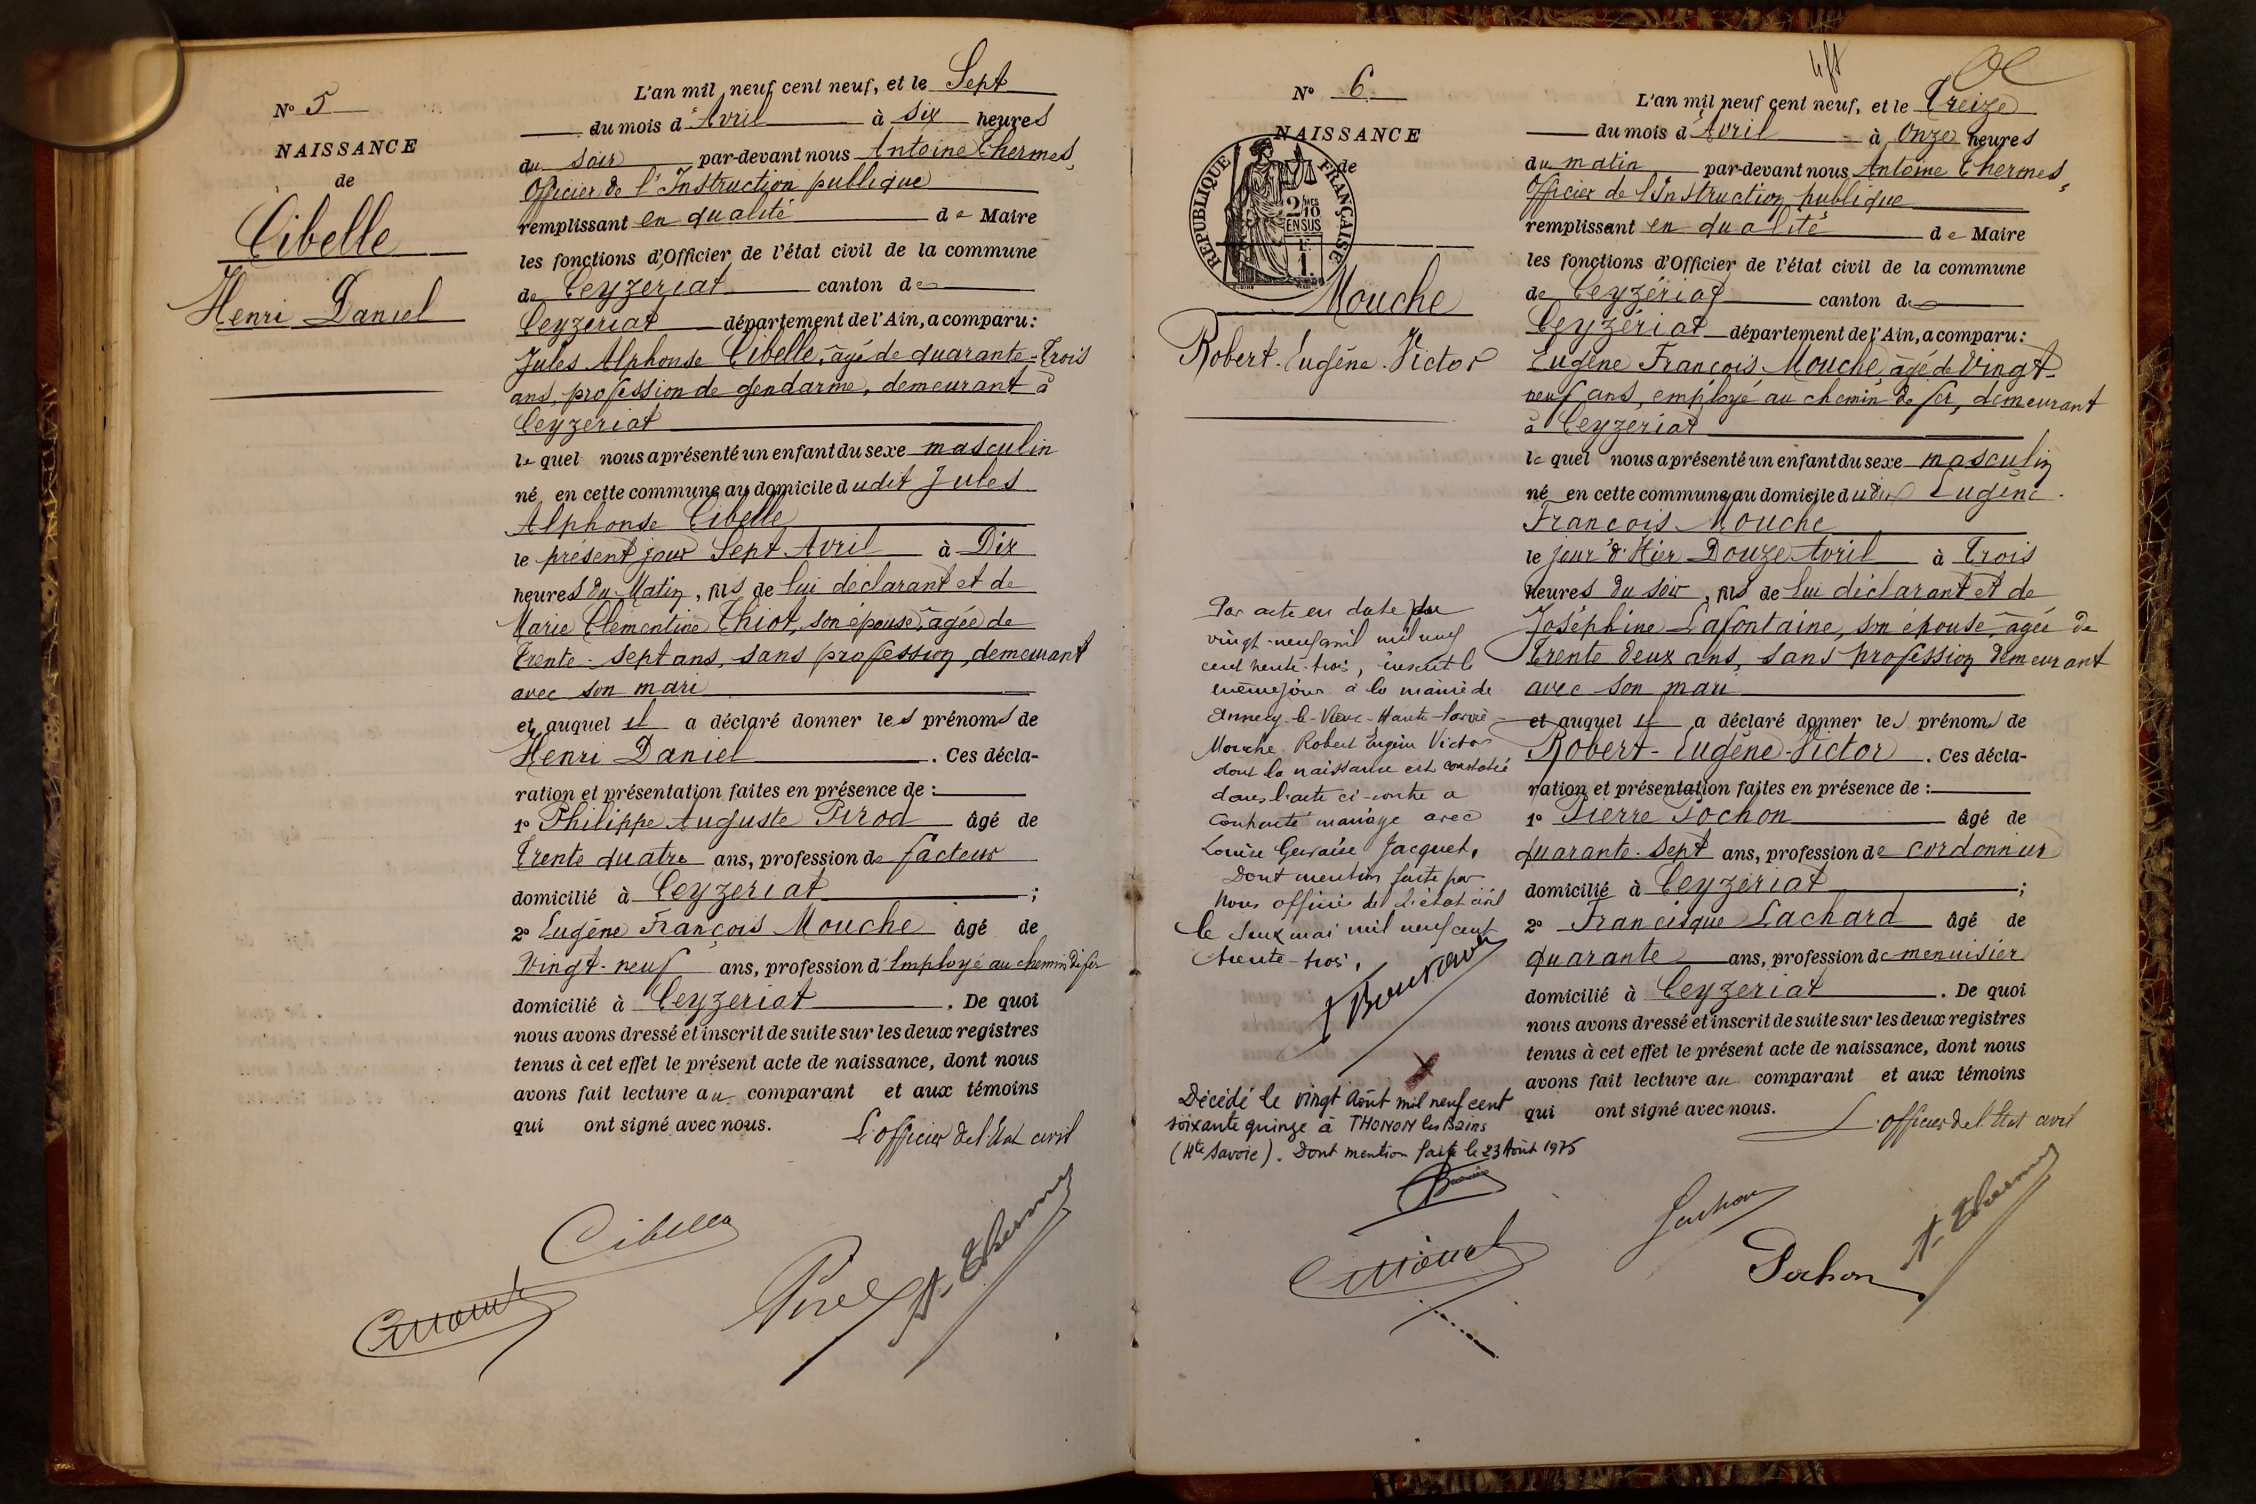 N° 5
NAISSANCE
de
Cibelle
Henri Daniel
L'an mil neuf cent neuf, et le Sept
du mois d'Avril à six heures
du soir par-devant nous Antoine Thermes,
Officier de l'Instruction publique
remplissant en qualité de Maire
les fonctions d'Officier de l'état civil de la commune
de Ceyzeriat canton de
Ceyzeriat département de l'Ain, a comparu :
Jules Alphonse Cibelle, âgé de quarante-trois
ans, profession de gendarme, demeurant à
Ceyzeriat
le quel nous a présenté un enfant du sexe masculin
né en cette commune au domicile dudit Jules
Alphonse Cibelle
le présent jour Sept Avril à Dix
heures du Matin, fils de lui déclarant et de
Marie Clémentine Thiot, son épouse, âgée de
trente-sept ans, sans profession, demeurant
avec son mari
et auquel il a déclaré donner les prénoms de
Henri Daniel. Ces décla-
ration et présentation faites en présence de :
1° Philippe Auguste Pirod âgé de
trente quatre ans, profession de facteur
domicilié à Ceyzeriat ;
2° Eugène François Mouche âgé de
vingt-neuf ans, profession d'employé au chemin de fer
domicilié à Ceyzeriat. De quoi
nous avons dressé et inscrit de suite sur les deux registres
tenus à cet effet le présent acte de naissance, dont nous
avons fait lecture au comparant et aux témoins
qui ont signé avec nous. L'officier de l'Etat civil
Cibelle
A. Thermes
N° 6
NAISSANCE
de
REPUBLIQUE FRANÇAISE
2/10
EN SUS
Mouche
Robert-Eugène-Victor
Par acte en date du
vingt-neuf avril mil neuf
cent trente-trois, inscrit le
même jour à la mairie de
Annecy-le-Vieux-Haute-Savoie
Mouche Robert Eugène Victor
dont la naissance est constatée
dans l'acte ci-contre a
contracté mariage avec
Louise Gervaise Jacquet.
Dont mention faite par
Nous officier de l'état civil
le deux mai mil neuf cent
trente-trois.
Décédé le vingt Août mil neuf cent
soixante quinze à THONON les Bains
(Hte Savoie). Dont mention faite le 23 Août 1975
L'an mil neuf cent neuf, et le Treize
du mois d'Avril à Onze heures
du matin par-devant nous Antoine Thermes,
Officier de l'Instruction publique
remplissant en qualité de Maire
les fonctions d'Officier de l'état civil de la commune
de Ceyzériat canton de
Ceyzériat département de l'Ain, a comparu :
Eugène François Mouche, âgé de vingt-
neuf ans, employé au chemin de fer, demeurant
à Ceyzeriat
le quel nous a présenté un enfant du sexe masculin
né en cette commune au domicile dudit Eugène
François Mouche
le jour d'Hier Douze Avril à trois
heures du soir, fils de lui déclarant et de
Joséphine Lafontaine, son épouse, âgée de
trente deux ans, sans profession demeurant
avec son mari
et auquel il a déclaré donner les prénoms de
Robert-Eugène-Victor. Ces décla-
ration et présentation faites en présence de :
1° Pierre Pochon âgé de
quarante-sept ans, profession de cordonnier
domicilié à Ceyzériat ;
2° Francisque Lachard âgé de
quarante ans, profession de menuisier
domicilié à Ceyzeriat. De quoi
nous avons dressé et inscrit de suite sur les deux registres
tenus à cet effet le présent acte de naissance, dont nous
avons fait lecture au comparant et aux témoins
qui ont signé avec nous. L'officier de l'Etat civil
Pochon
A. Thermes